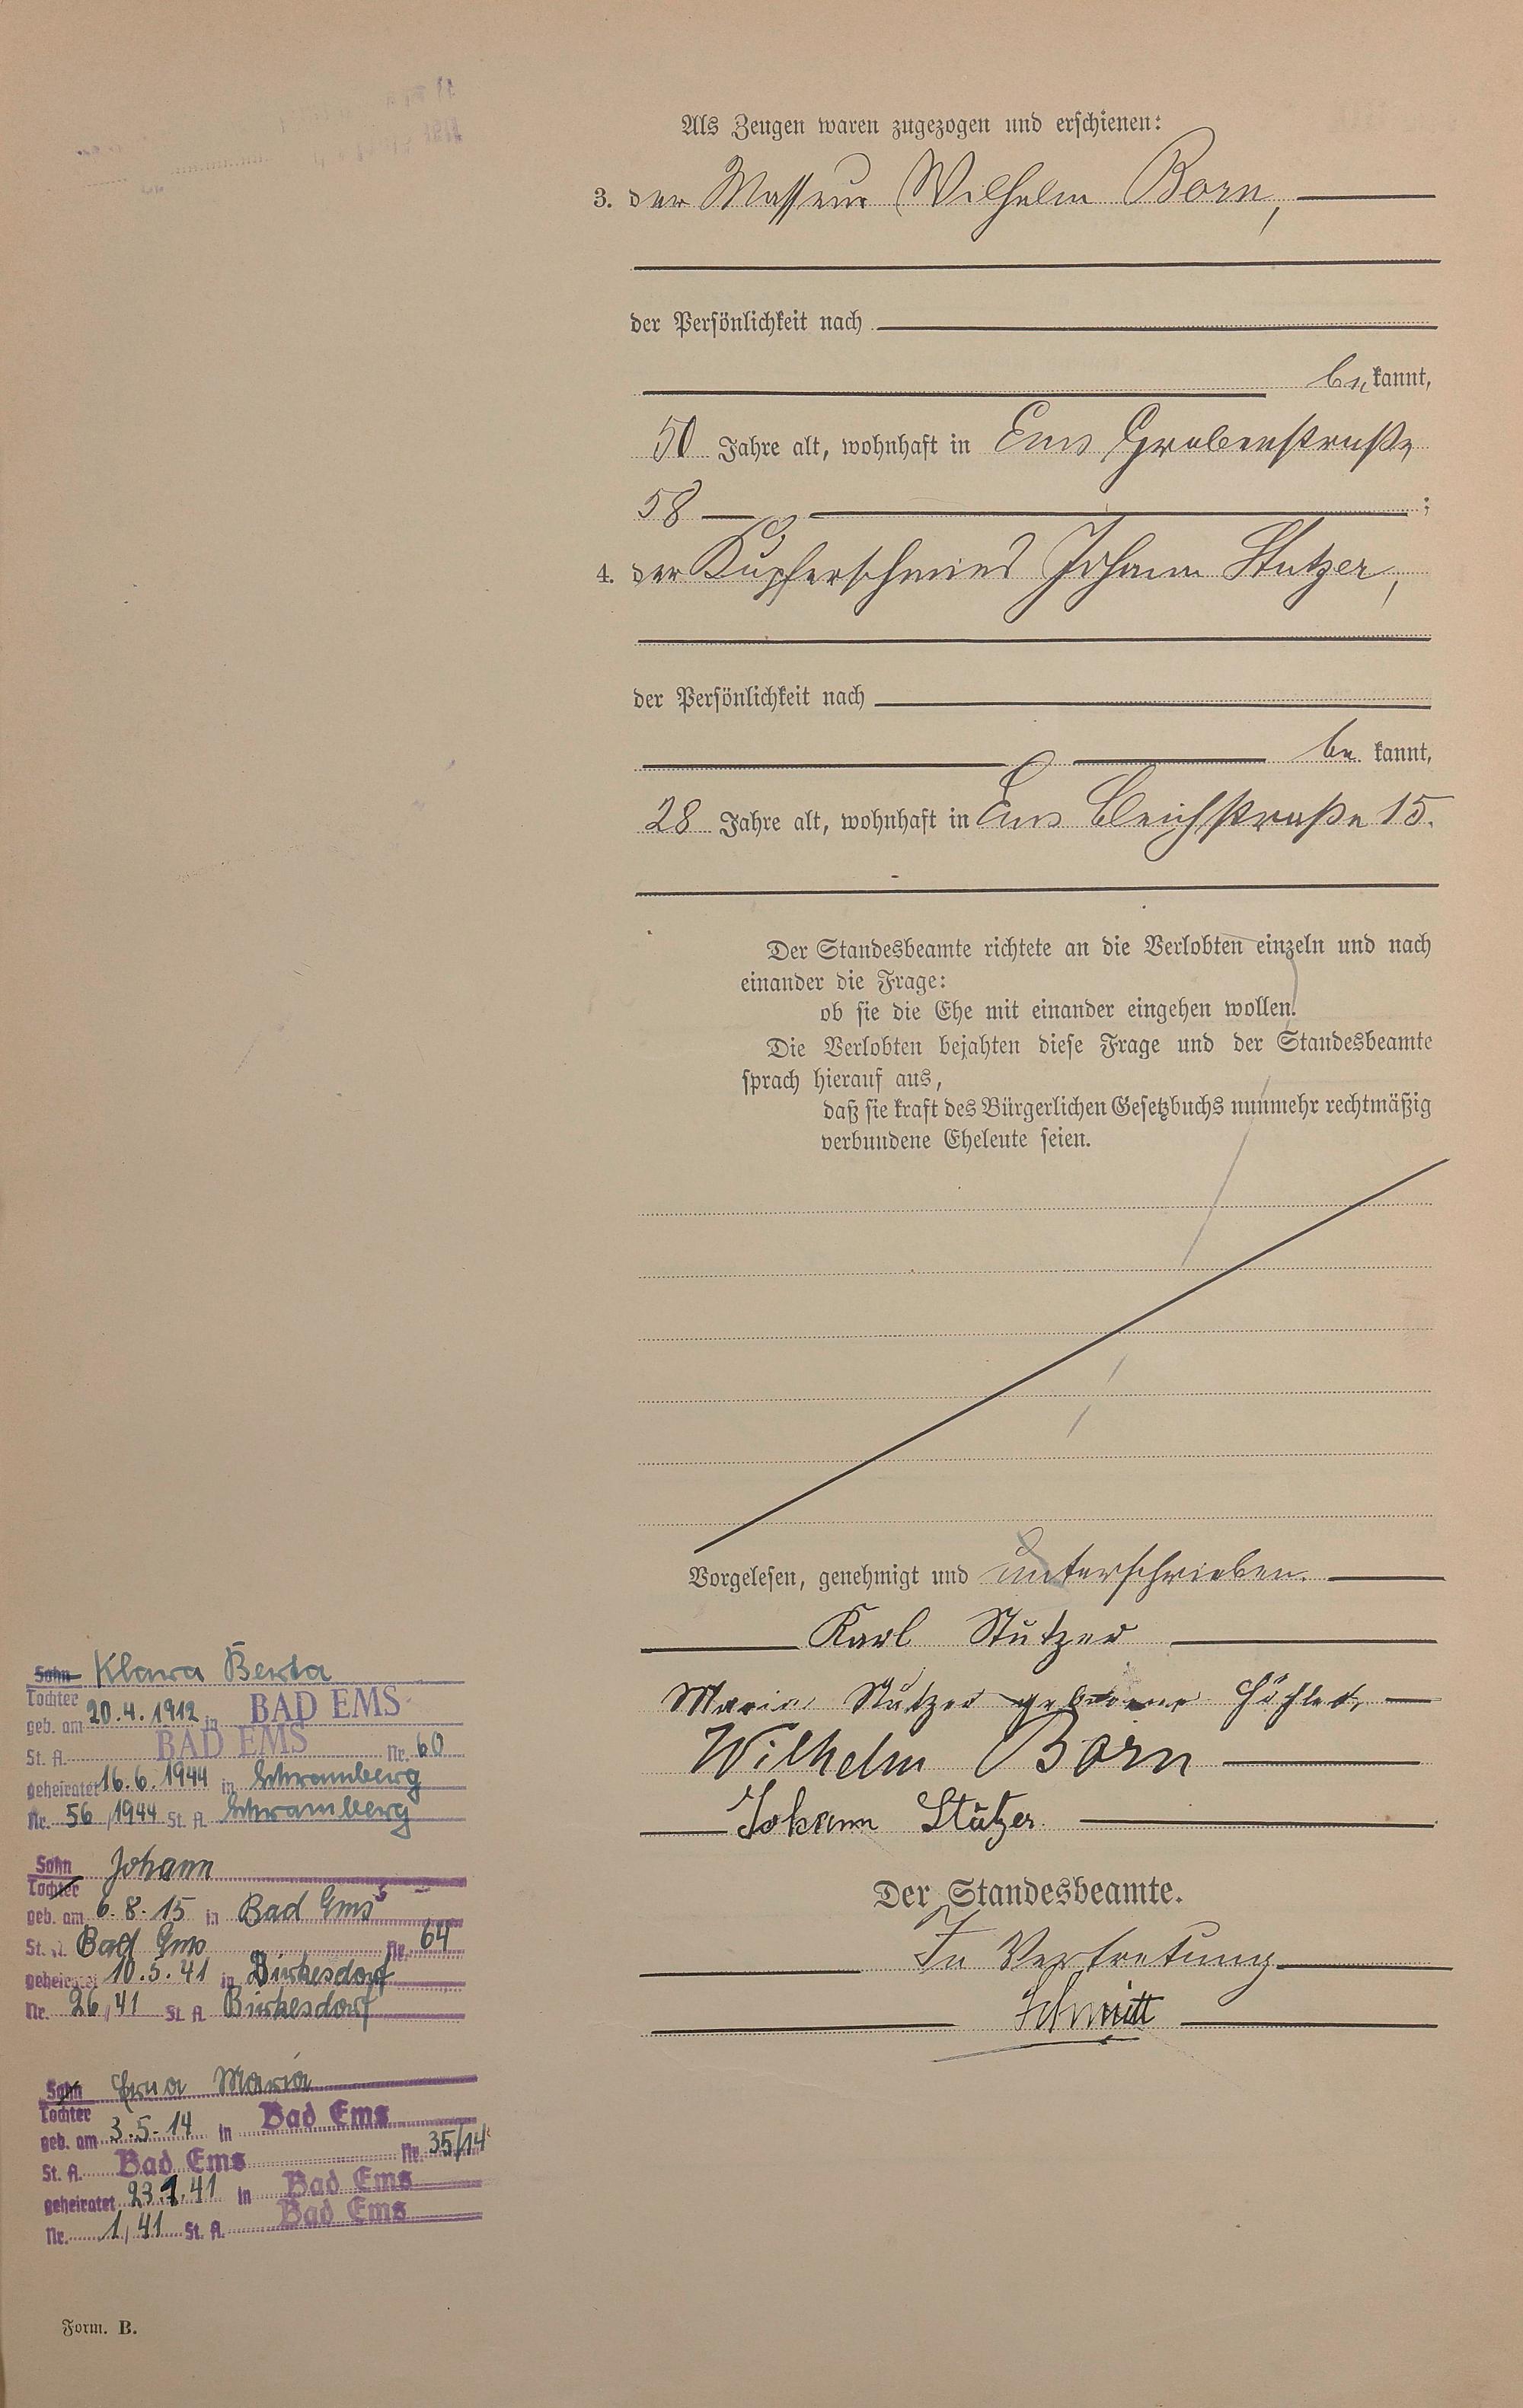 Als Zeugen waren zugezogen und erschienen:
3. der Masseur Wilhelm Born,
der Persönlichkeit nach
bekannt,
50 Jahre alt, wohnhaft in Ems Grabenstraße
58 ;
4. der Kupferschmied Johann Stutzer,
der Persönlichkeit nach
be kannt,
28 Jahre alt, wohnhaft in Ems Bleichstraße 15.
Der Standesbeamte richtete an die Verlobten einzeln und nach
einander die Frage:
ob sie die Ehe mit einander eingehen wollen.
Die Verlobten bejahten diese Frage und der Standesbeamte
sprach hierauf aus,
daß sie kraft des Bürgerlichen Gesetzbuchs nunmehr rechtmäßig
verbundene Eheleute seien.
Vorgelesen, genehmigt und unterschrieben.
Karl Stutzer
Maria Stutzer geborene
Wilhelm Born
Johann Stutzer
Der Standesbeamte.
In Vertretung
Schmitt
Sohn Klara Berta
Tochter
geb. am 20.4.1912 in BAD EMS
St. A. BAD EMS Nr. 60
geheiratet 16.6.1944 in Schramberg
Nr. 56/1944 St. A. Schramberg
Sohn Johann
Tochter
geb. am 6.8.15 in Bad Ems
St. A. Bad Ems Nr. 64
geheiratet 10.5.41 in Birkesdorf
Nr. 26/41 St. A. Birkesdorf
Sohn Erna Maria
Tochter
geb. am 3.5.14 in Bad Ems
St. A. Bad Ems Nr. 35/14
geheiratet 23.1.41 in Bad Ems
Nr. 1/41 St. A. Bad Ems
Form. B.